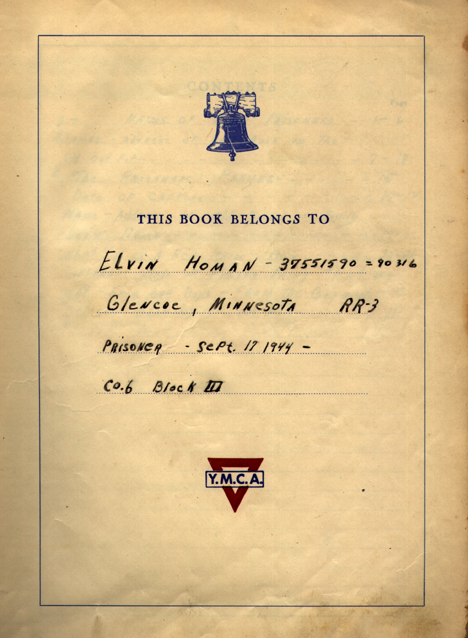 THIS BOOK BELONGS TO
ELVIN HOMAN - 37551590 = 90316
Glencoe, MINNESOTA RR-3
PRISONER - SEPt. 17 1944 -
Co.6 Block III
Y.M.C.A.